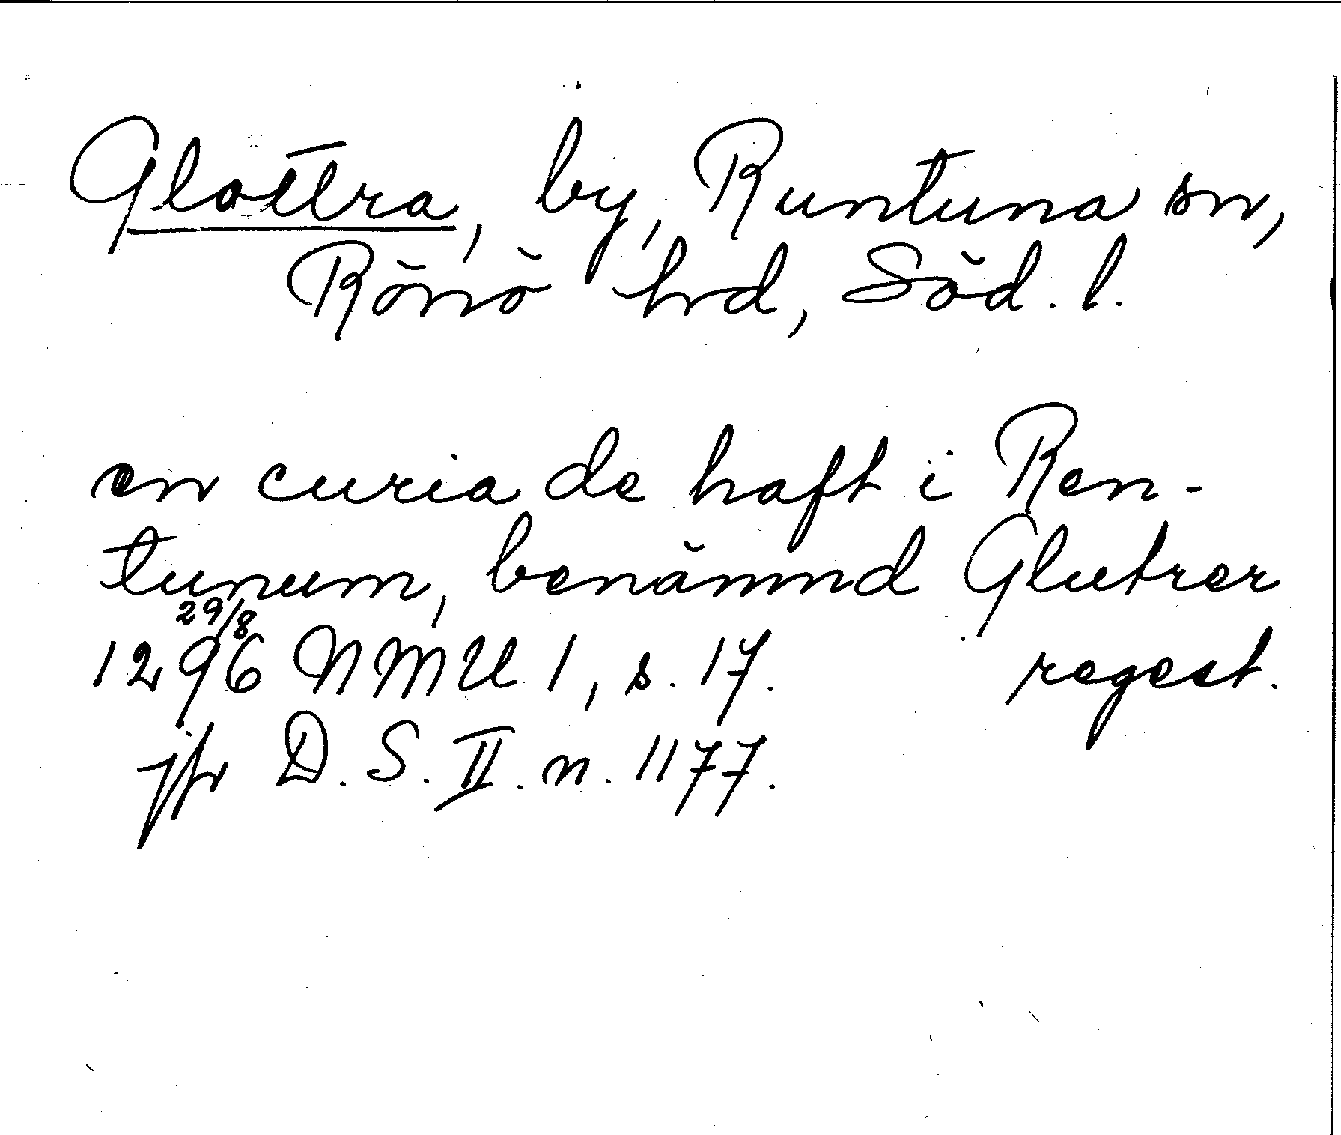 Glottra, by, Runtuna sn,
Rönö hrd, Söd. l.
en curia de haft i Ren-
tunum, benämnd Glutrer
29/8
1296 NMU 1, s. 17. regest.
jfr D. S. II. n. 1177.